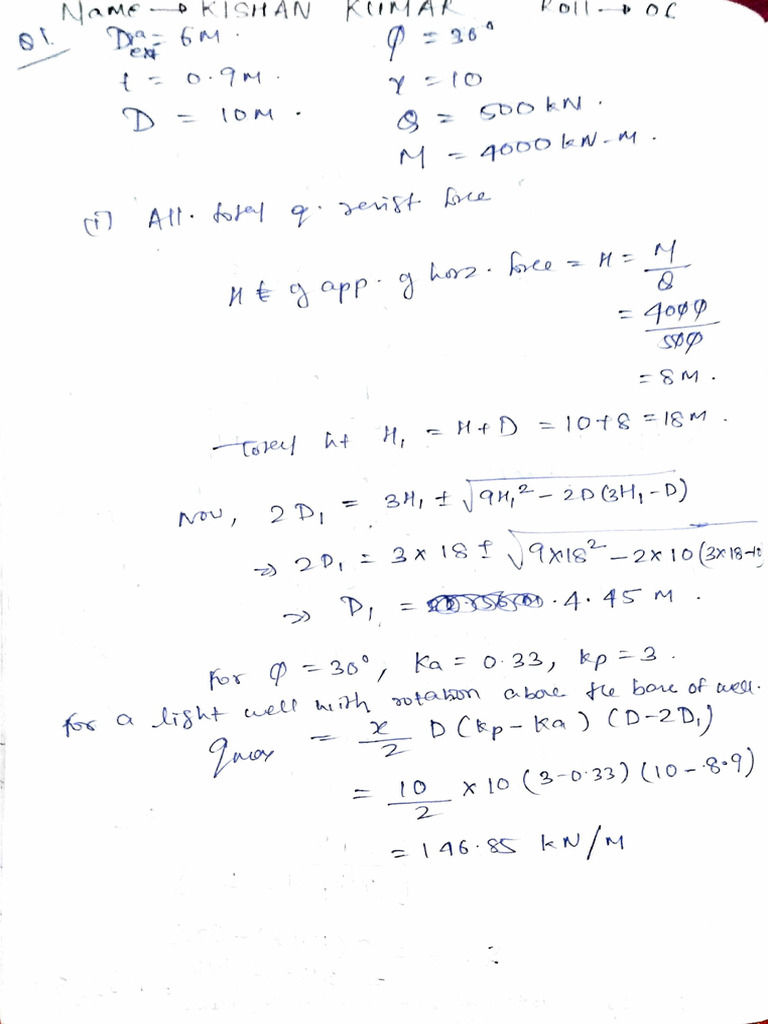 Name → KISHAN KUMAR Roll → 06
Q1. Dia ext = 6M. φ = 30°
t = 0.9M. γ = 10
D = 10M. Q = 500 kN.
M = 4000 kN-M.
(i) All. total q. resist force
app. g horz. force = H = M/Q
= 4000/500
= 8M.
Total ht H₁ = H+D = 10+8 = 18M.
Now, 2D₁ = 3H₁ ± √(9H₁² - 2D(3H₁-D)
⇒ 2D₁ = 3 × 18 ± √(9×18² - 2×10(3×18-10
⇒ D₁ = 4.45 M.
For φ = 30°, Ka = 0.33, kp = 3.
for a light well with rotation above the base of well.
qmax = γ/2 D (kp - ka) (D-2D₁)
= 10/2 × 10 (3-0.33) (10-8.9)
= 146.85 kN/M